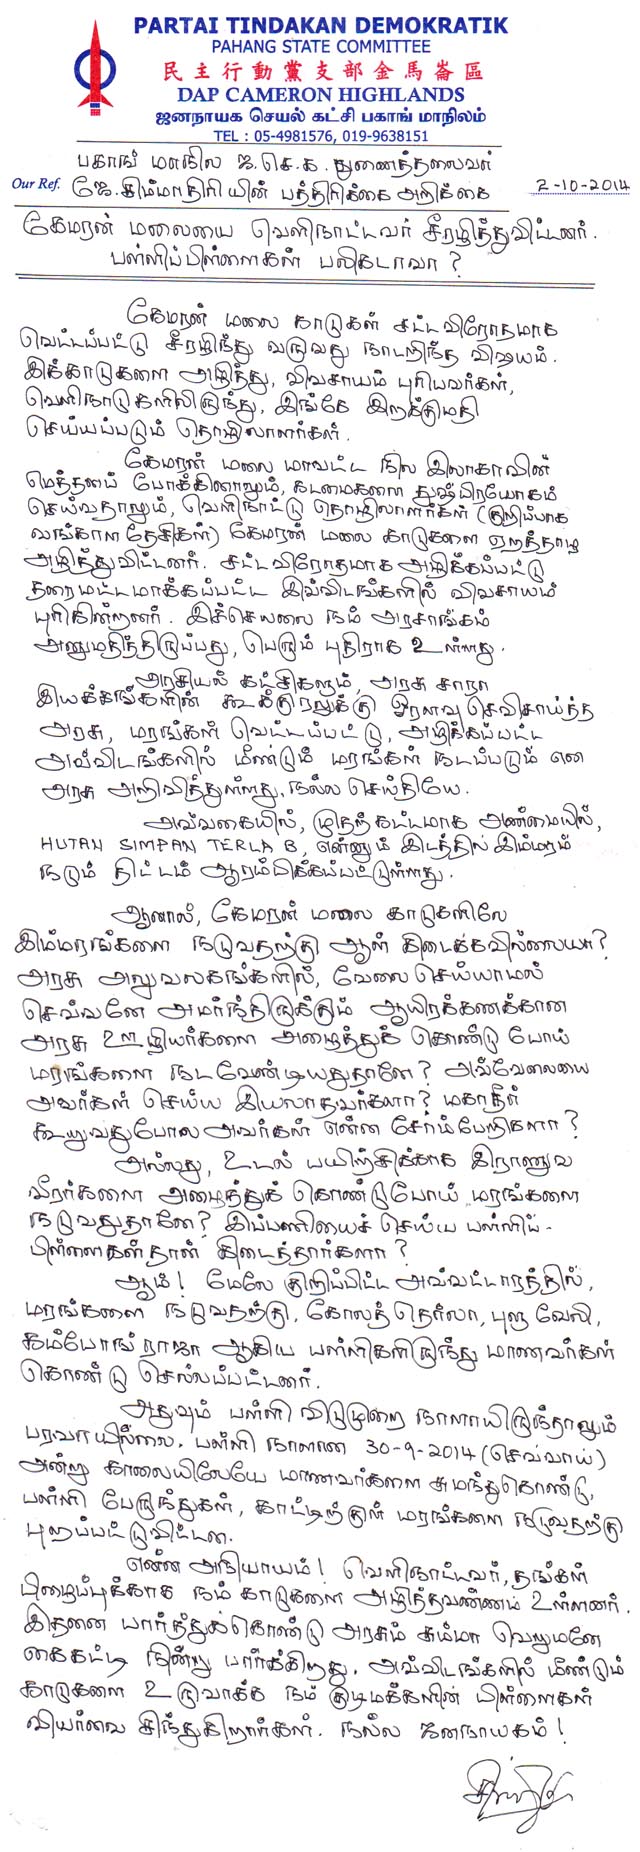 PARTAI TINDAKAN DEMOKRATIK
PAHANG STATE COMMITTEE
民主行動黨支部金馬崙區
DAP CAMERON HIGHLANDS
ஜனநாயக செயல் கட்சி பகாங் மாநிலம்
TEL : 05-4981576, 019-9638151
பகாங் மாநில ஜ.செ.க. துணைத்தலைவர்
Our Ref. ஜே.சிம்மாதிரியின் பத்திரிக்கை அறிக்கை 2-10-2014
கேமரன் மலையை வெளிநாட்டவர் சீரழித்துவிட்டனர்.
பள்ளிப்பிள்ளைகள் பலிகடாவா?
கேமரன் மலை காடுகள் சட்டவிரோதமாக
வெட்டப்பட்டு சீரழிந்து வருவது நாடறிந்த விஷயம்.
இக்காடுகளை அழித்து, விவசாயம் புரியவர்கள்,
வெளிநாடுகளிலிருந்து, இங்கே இறக்குமதி
செய்யப்படும் தொழிலாளர்கள்.
கேமரன் மலை மாவட்ட நில இலாகாவின்
மெத்தனப் போக்கினாலும், கடமைகளை துஷ்பிரயோகம்
செய்வதாலும், வெளிநாட்டு தொழிலாளர்கள் (குறிப்பாக
வங்காளதேசிகள்) கேமரன் மலை காடுகளை ஏறத்தாழ
அழித்துவிட்டனர். சட்டவிரோதமாக அழிக்கப்பட்டு
தரைமட்டமாக்கப்பட்ட இவ்விடங்களில் விவசாயம்
புரிகின்றனர். இச்செயலை நம் அரசாங்கம்
அனுமதித்திருப்பது, பெரும் புதிராக உள்ளது.
அரசியல் கட்சிகளும், அரசு சாரா
இயக்கங்களின் கூக்குரலுக்கு ஓரளவு செவிசாய்த்த
அரசு, மரங்கள் வெட்டப்பட்டு, அழிக்கப்பட்ட
அவ்விடங்களில் மீண்டும் மரங்கள் நடப்படும் என
அரசு அறிவித்துள்ளது. நல்ல செய்தியே.
அவ்வகையில், முதற்கட்டமாக அண்மையில்,
HUTAN SIMPAN TERLA B, என்னும் இடத்தில் இம்மரம்
நடும் திட்டம் ஆரம்பிக்கப்பட்டுள்ளது.
ஆனால், கேமரன் மலை காடுகளிலே
இம்மரங்களை நடுவதற்கு ஆள் கிடைக்கவில்லையா?
அரசு அலுவலகங்களில், வேலை செய்யாமல்
செவ்வனே அமர்ந்திருக்கும் ஆயிரக்கணக்கான
அரசு ஊழியர்களை அழைத்துக் கொண்டு போய்
மரங்களை நட வேண்டியதுதானே? அவ்வேலையை
அவர்கள் செய்ய இயலாதவர்களா? மகாதீர்
கூறுவதுபோல அவர்கள் என்ன சோம்பேறிகளா?
அல்லது, உடல் பயிற்சிக்காக இராணுவ
வீரர்களை அழைத்துக் கொண்டுபோய் மரங்களை
நடுவதுதானே? இப்பணியைச் செய்ய பள்ளிப்-
பிள்ளைகள்தான் கிடைத்தார்களா?
ஆம்! மேலே குறிப்பிட்ட அவ்வட்டாரத்தில்,
மரங்களை நடுவதற்கு, கோலத் தெர்லா, புளு வேலி,
கம்போங் ராஜா ஆகிய பள்ளிகளிருந்து மாணவர்கள்
கொண்டு செல்லப்பட்டனர்.
அதுவும் பள்ளி விடுமுறை நாளாயிருந்தாலும்
பரவாயில்லை. பள்ளி நாளான 30-9-2014 (செவ்வாய்)
அன்று காலையிலேயே மாணவர்களை சுமந்துகொண்டு,
பள்ளி பேருந்துகள், காட்டிற்குள் மரங்களை நடுவதற்கு
புறப்பட்டுவிட்டன.
என்ன அநியாயம்! வெளிநாட்டவர், தங்கள்
பிழைப்புக்காக நம் காடுகளை அழித்தவண்ணம் உள்ளனர்.
இதனை பார்த்துக்கொண்டு அரசும் சும்மா வெறுமனே
கைகட்டி நின்று பார்க்கிறது. அவ்விடங்களில் மீண்டும்
காடுகளை உருவாக்க நம் குடிமக்களின் பிள்ளைகள்
வியர்வை சிந்துகிறார்கள். நல்ல ஜனநாயகம்!